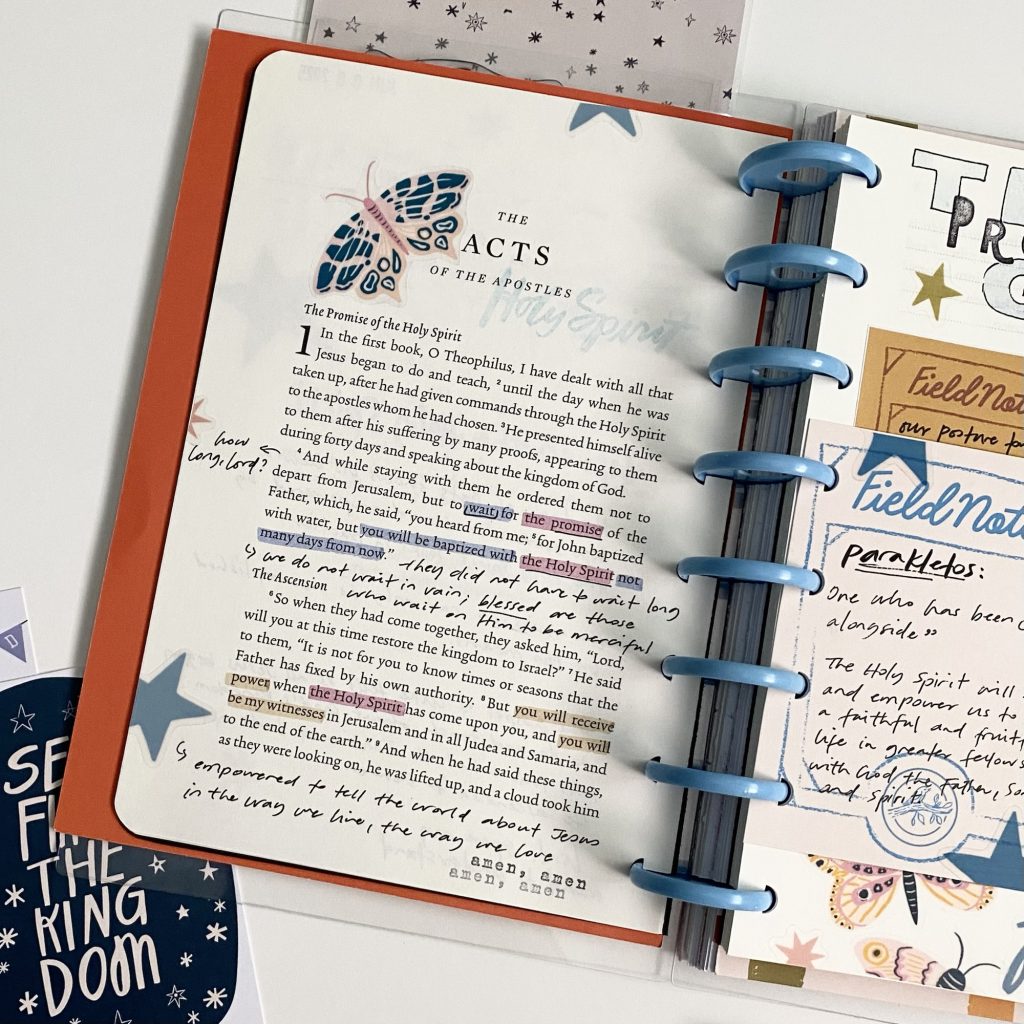 THE
ACTS
OF THE APOSTLES
Holy Spirit
The Promise of the Holy Spirit
1 In the first book, O Theophilus, I have dealt with all that
Jesus began to do and teach, ²until the day when he was
taken up, after he had given commands through the Holy Spirit
to the apostles whom he had chosen. ³He presented himself alive
to them after his suffering by many proofs, appearing to them
during forty days and speaking about the kingdom of God.
how
long, lord?
⁴And while staying with them he ordered them not to
depart from Jerusalem, but to wait for the promise of the
Father, which, he said, “you heard from me; ⁵for John baptized
with water, but you will be baptized with the Holy Spirit not
many days from now.” They did not have to wait long
we do not wait in vain; blessed are those
who wait on Him to be merciful
The Ascension
⁶So when they had come together, they asked him, “Lord,
will you at this time restore the kingdom to Israel?” ⁷He said
to them, “It is not for you to know times or seasons that the
Father has fixed by his own authority. ⁸But you will receive
power when the Holy Spirit has come upon you, and you will
be my witnesses in Jerusalem and in all Judea and Samaria, and
to the end of the earth.” ⁹And when he had said these things,
as they were looking on, he was lifted up, and a cloud took him
empowered to tell the world about Jesus
in the way we live, the way we love
amen, amen
amen, amen
Field Not
our posture
Field Not
Parakletos:
One who has been
alongside”
The Holy Spirit will
and empower us to
a faithful and
life in greater
with God the Father,
and Spirit
D
THE
KING
DOM